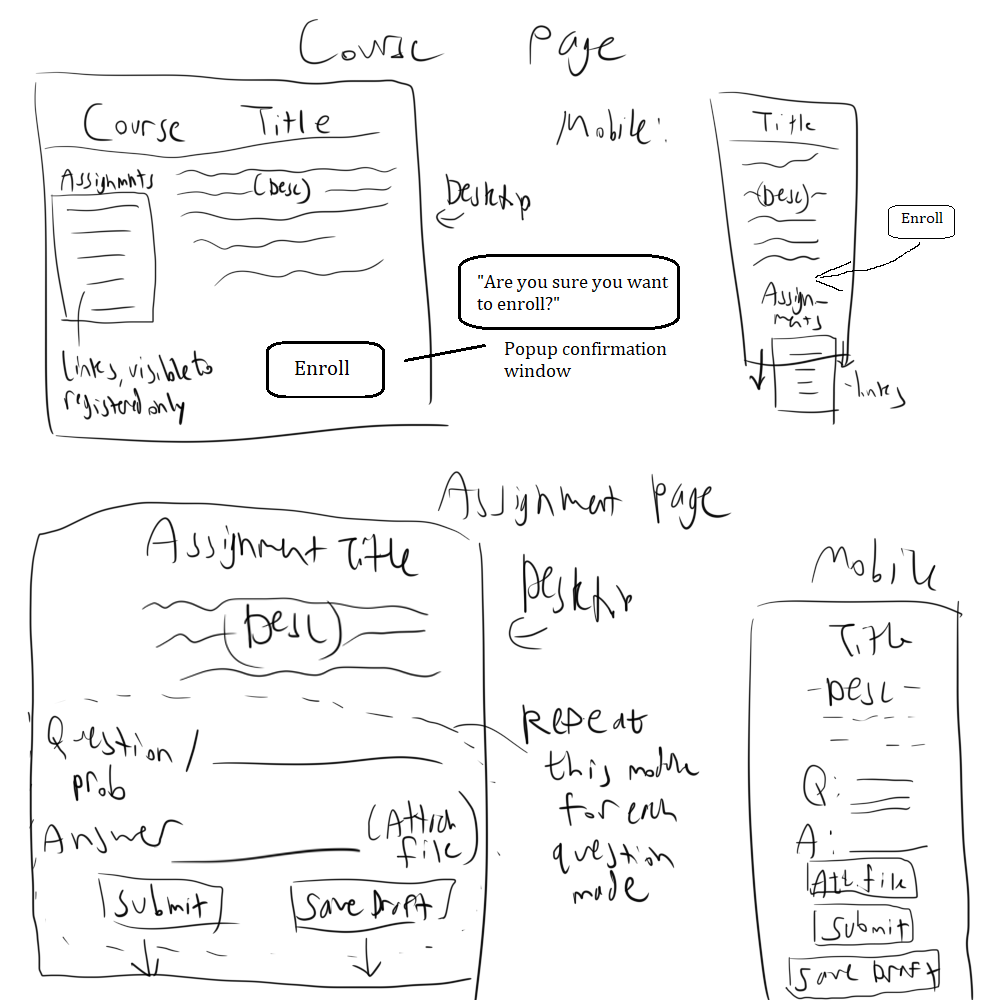 Course Page
Course Title
Assignmnts
(Desc)
Links, visible to
registered only
Enroll
Desktp
"Are you sure you want
to enroll?"
Popup confirmation
window
Mobile:
Title
(Desc)
Enroll
Assign-
ments
links
Assignment page
Assignment Title
(Desc)
Question /
prob
Answer
(Attach
file)
Submit
Save Draft
Desktp
Repeat
this module
for each
question
made
Mobile
Title
-Desc-
Q:
A:
Att. file
Submit
Save Draft